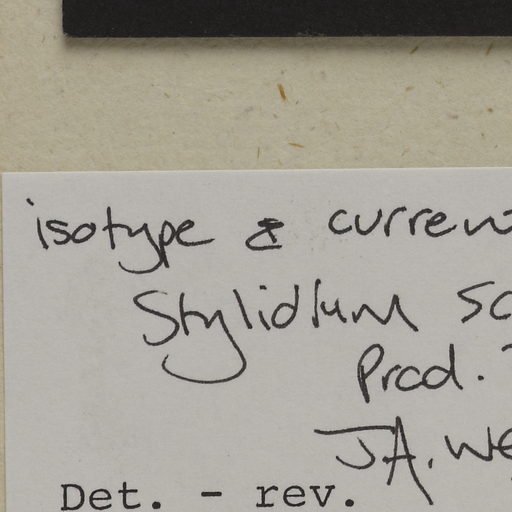 isotype & curren
Stylidium sc
Prod.
J.A. We
Det. - rev.